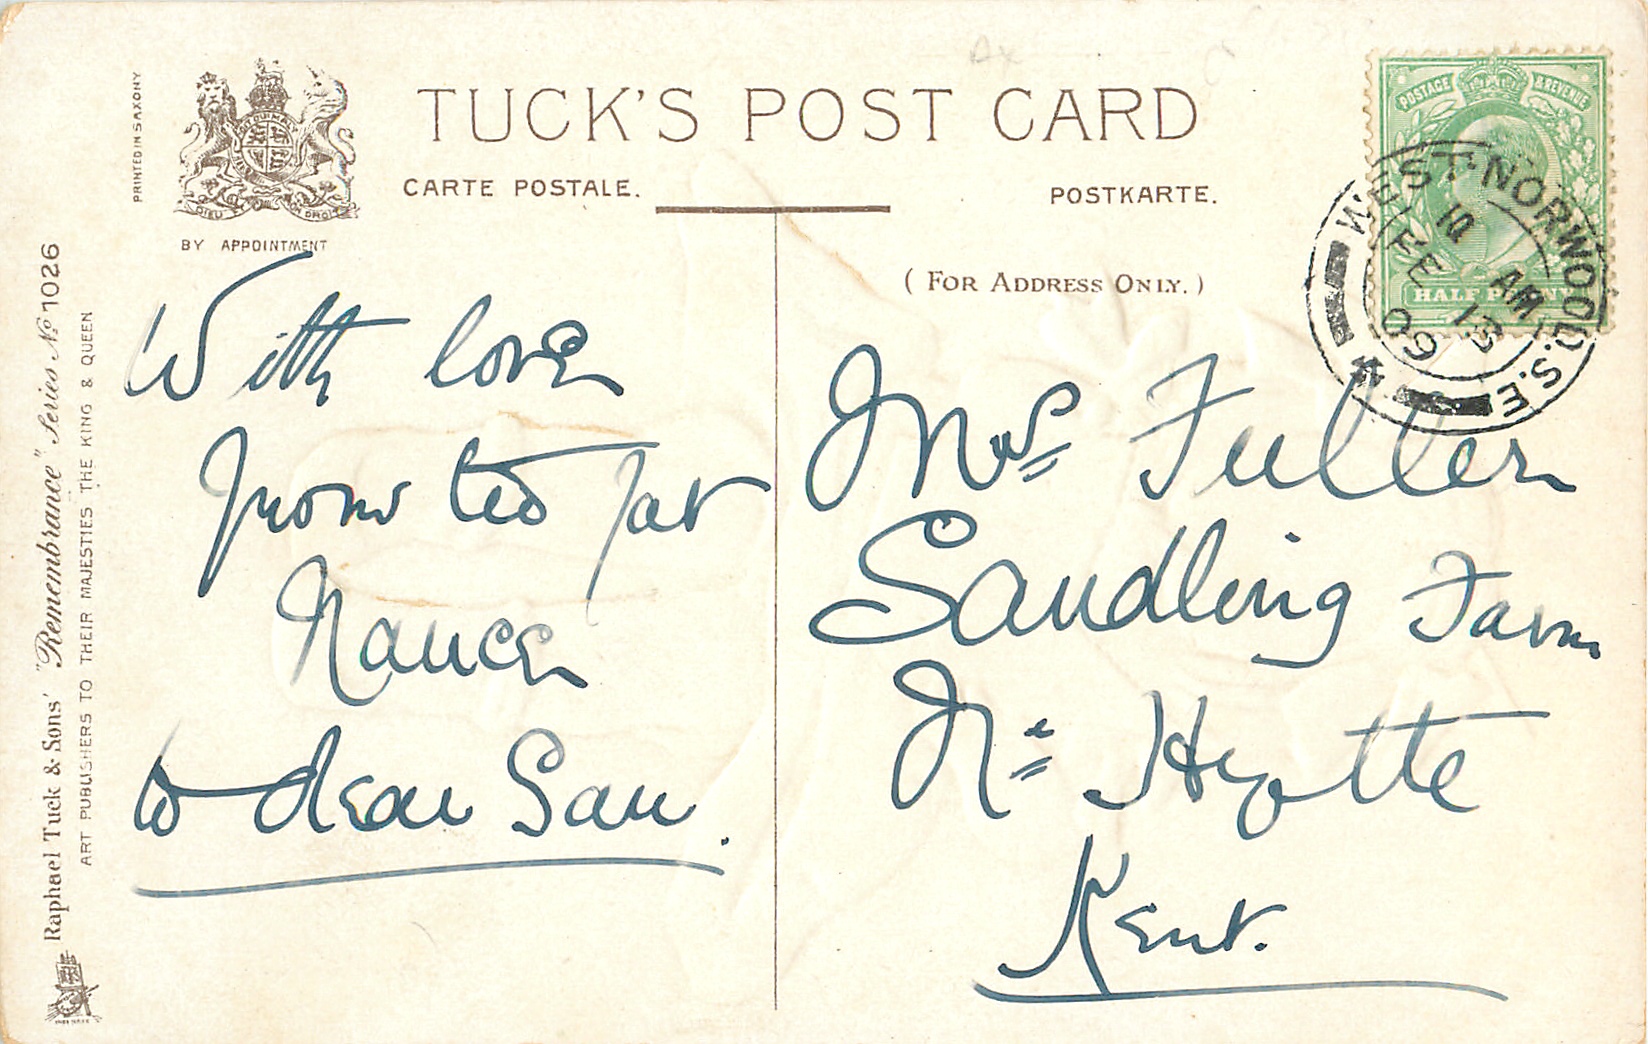 PRINTED IN SAXONY
BY APPOINTMENT
TUCK'S POST CARD
CARTE POSTALE.
POSTKARTE.
(FOR ADDRESS ONLY.)
Raphael Tuck & Sons' "Remembrance" Series No 1026
ART PUBLISHERS TO THEIR MAJESTIES THE KING & QUEEN
With love
from Ted pat
Nance
to dear San.
Mrs Fuller
Sandling Farm
Nr Hythe
Kent.
POSTAGE & REVENUE
HALF PENNY
WEST NORWOOD. S.E
10 AM
FE 13
09